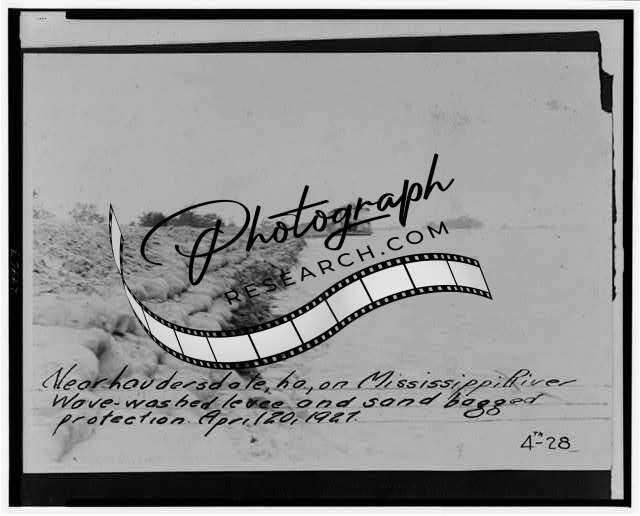 Photograph
RESEARCH.COM
Near Laudersdale, La., on Mississippi River
Wave-washed levee and sand bagged
protection. April 20, 1927.
4TH-28